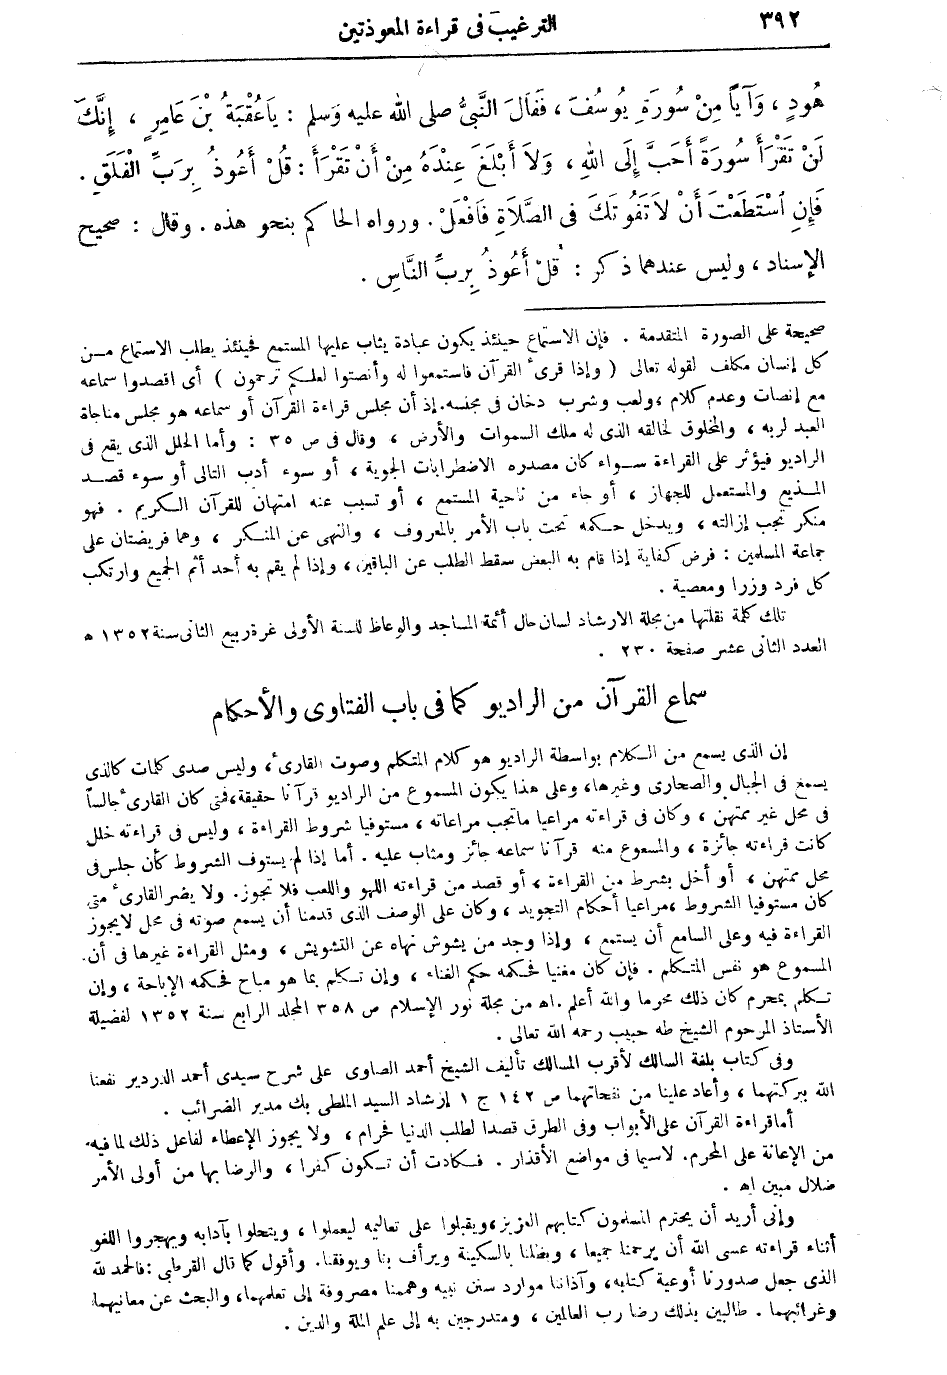 ٣٩٢
الترغيب فى قراءة المعوذتين
هُودٍ ، وَآيًا مِنْ سُورَةِ يُوسُفَ ، فَقَالَ النَّبِىُّ صلى الله عليه وَسلم : يَاعُقْبَةُ بْنَ عَامِرٍ ، إِنَّكَ
لَنْ تَقْرَأَ سُورَةً أَحَبَّ إِلَى اللهِ ، وَلاَ أَبْلَغَ عِنْدَهُ مِنْ أَنْ تَقْرَأَ : قُلْ أَعُوذُ بِرَبِّ الْفَلَقِ .
فَإِنِ اسْتَطَعْتَ أَنْ لاَ تَفُوتَكَ فى الصَّلاَةِ فَافْعَلْ . ورواه الحاكم بنحو هذه . وقال : صحيح
الإسناد ، وليس عندهما ذكر : قُلْ أَعُوذُ بِرَبِّ النَّاسِ .
صحيحة على الصورة المتقدمة . فإن الاستماع حينئذ يكون عبادة يثاب عليها المستمع فحينئذ يطلب الاستماع مـن
كل إنسان مكلف لقوله تعالى ( وإذا قرىء القرآن فاستمعوا له وأنصتوا لعلكم ترحمون ) أى اقصدوا سماعه
مع إنصات وعدم كلام ،ولعب وشرب دخان فى مجلسه.إذ أن مجلس قراءة القرآن أو سماعه هو مجلس مناجاة
العبد لربه ، والمخلوق لخالقه الذى له ملك السموات والأرض ، وقال فى ص ٣٥ : وأما الخلل الذى يقع فى
الراديو فيؤثر على القراءة ســواء كان مصدره الاضطرابات الجوية ، أو سوء أدب التالى أو سوء قصـد
المـذيع والمستعمل للجهاز ، أو جاء من ناحية المستمع ، أو تسبب عنه امتهان للقرآن الـكريم . فهو
منكر تجب إزالته ، ويدخل حـكمه تحت باب الأمر بالمعروف ، والنهى عن المنـكر ، وهما فريضتان على
جماعة المسلمين : فرض كفاية إذا قام به البعض سقط الطلب عن الباقين ، وإذا لم يقم به أحد أثم الجميع وارتكب
كل فرد وزرا ومعصية .
تلك كلمة نقلتها من مجلة الارشاد لسان حال أئمة المساجد والوعاظ للسنة الأولى غرة ربيع الثانى سنة ١٣٥٢ ه
العدد الثانى عشر صفحة ٢٣٠ .
سماع القرآن من الراديو كما فى باب الفتاوى والأحكام
إن الذى يسمع من الـكلام بواسطة الراديو هو كلام المتكلم وصوت القارىء ، وليس صدى كلمات كالذى
يسمع فى الجبال والصحارى وغيرها، وعلى هذا يكون المسموع من الراديو قرآنا حقيقة، فمتى كان القارىء جالساً
فى محل غير ممتهن ، وكان فى قراءته مراعيا ماتجب مراعاته ، مستوفيا شروط القراءة ، وليس فى قراءته خلل
كانت قراءته جائزة ، والمسموع منه قرآنا سماعه جائز ومثاب عليه . أما إذا لم يستوف الشروط كأن جلس فى
محل ممتهن ، أو أخل بشرط من القراءة ، أو قصد من قراءته اللهو واللعب فلا تجوز. ولا يضر القارىء متى
كان مستوفيا الشروط ،مراعيا أحكام التجويد ، وكان على الوصف الذى قدمنا أن يسمع صوته فى محل لايجوز
القراءة فيه وعلى السامع أن يستمع ، وإذا وجد من يشوش نهاه عن التشويش ، ومثل القراءة غيرها فى أن
المسموع هو نفس المتـكلم . فإن كان مغنيا فحكمه حكم الغناء ، وإن تـكلم بما هو مباح فحكمه الإباحة ، وإن
تـكلم بمحرم كان ذلك محرما والله أعلم .اه من مجلة نور الإسلام ص ٣٥٨ المجلد الرابع سنة ١٣٥٢ لفضيلة
الأستاذ المرحوم الشيخ طه حبيب رحمه الله تعالى .
وفى كتاب بلغة السالك لأقرب المسالك تأليف الشيخ أحمد الصاوى على شرح سيدى أحمد الدردير نفعنا
الله ببركتهما ، وأعاد علينا من نفحاتهما ص ١٤٢ ج ١ إرشاد السيد الملطى بك مدير الضرائب .
أما قراءة القرآن على الأبواب وفى الطرق قصدا لطلب الدنيا فحرام ، ولا يجوز الإعطاء لفاعل ذلك لما فيه
من الإعانة على المحرم. لاسيما فى مواضع الأقذار . فـكادت أن تـكون كفرا ، والرضا بها من أولى الأمر
ضلال مبين اه .
وإنى أريد أن يحترم المسلمون كتابهم العزيز،ويقبلوا على تعاليمه ليعملوا ، ويتحلوا بآدابه ويهجروا اللغو
أثناء قراءته عسى الله أن يرحمنا جميعا ، ويظلنا بالسكينة ويرأف بنا ويوفقنا. وأقول كما قال القرطبى :فالحمد لله
الذى جعل صدورنا أوعية كتابه، وآذاننا موارد سنن نبيه وهممنا مصروفة إلى تعلمهما، والبحث عن معانيهما
وغرائبهما . طالبين بذلك رضا رب العالمين ، ومتدرجين به إلى علم الملة والدين .